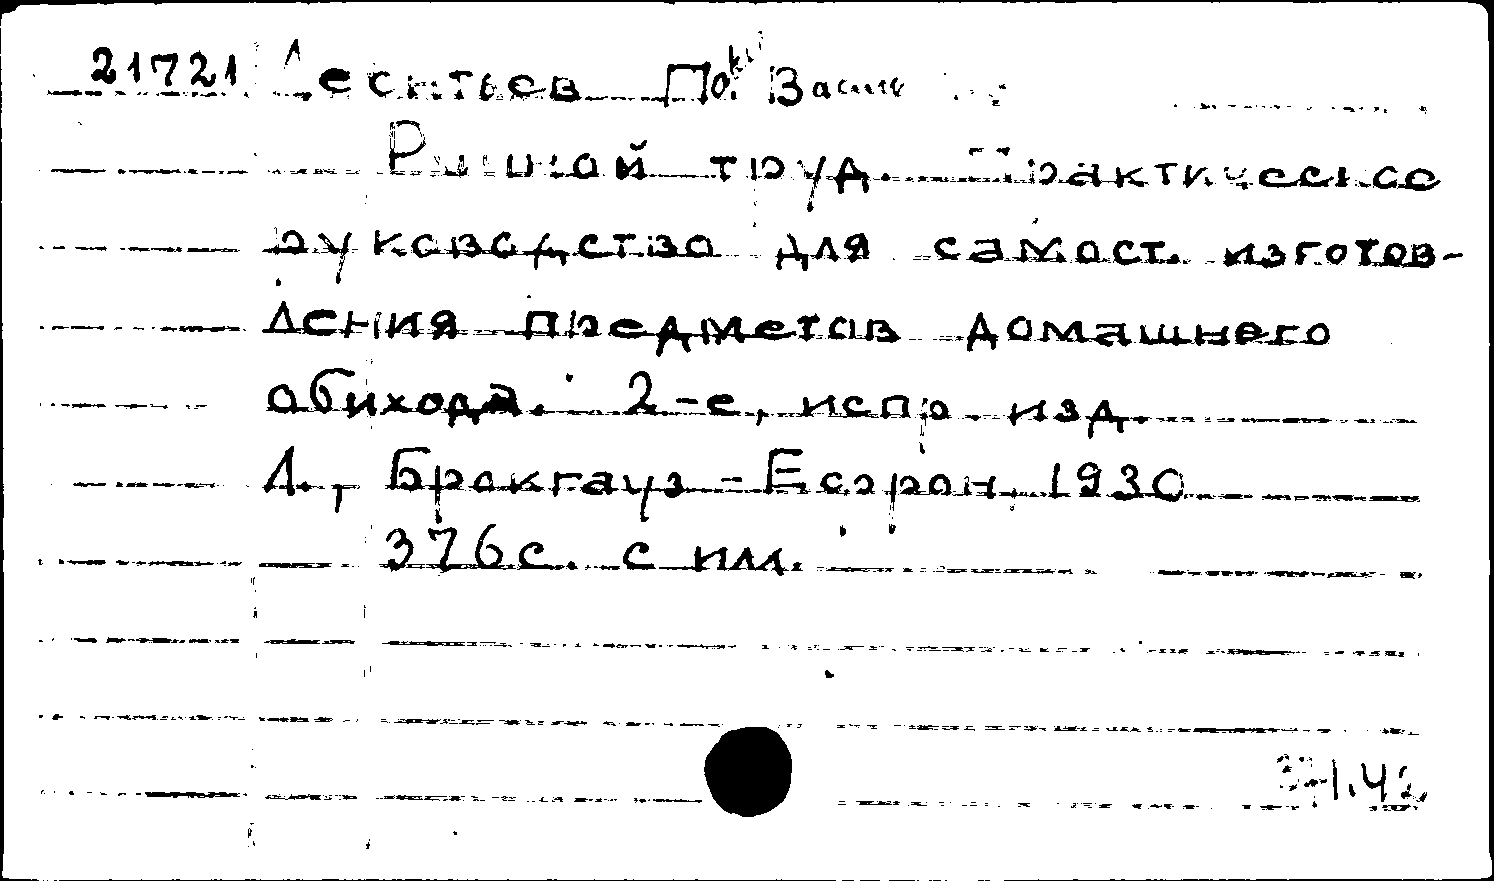 21721 Леонтьев П.
Ручной труд. Практическое
руководство для самост. изготов-
ления предметов домашнего
обихода. 2-е, испр. изд.
Л., Брокгауз-Ефрон, 1930
376с. с илл.
371.42